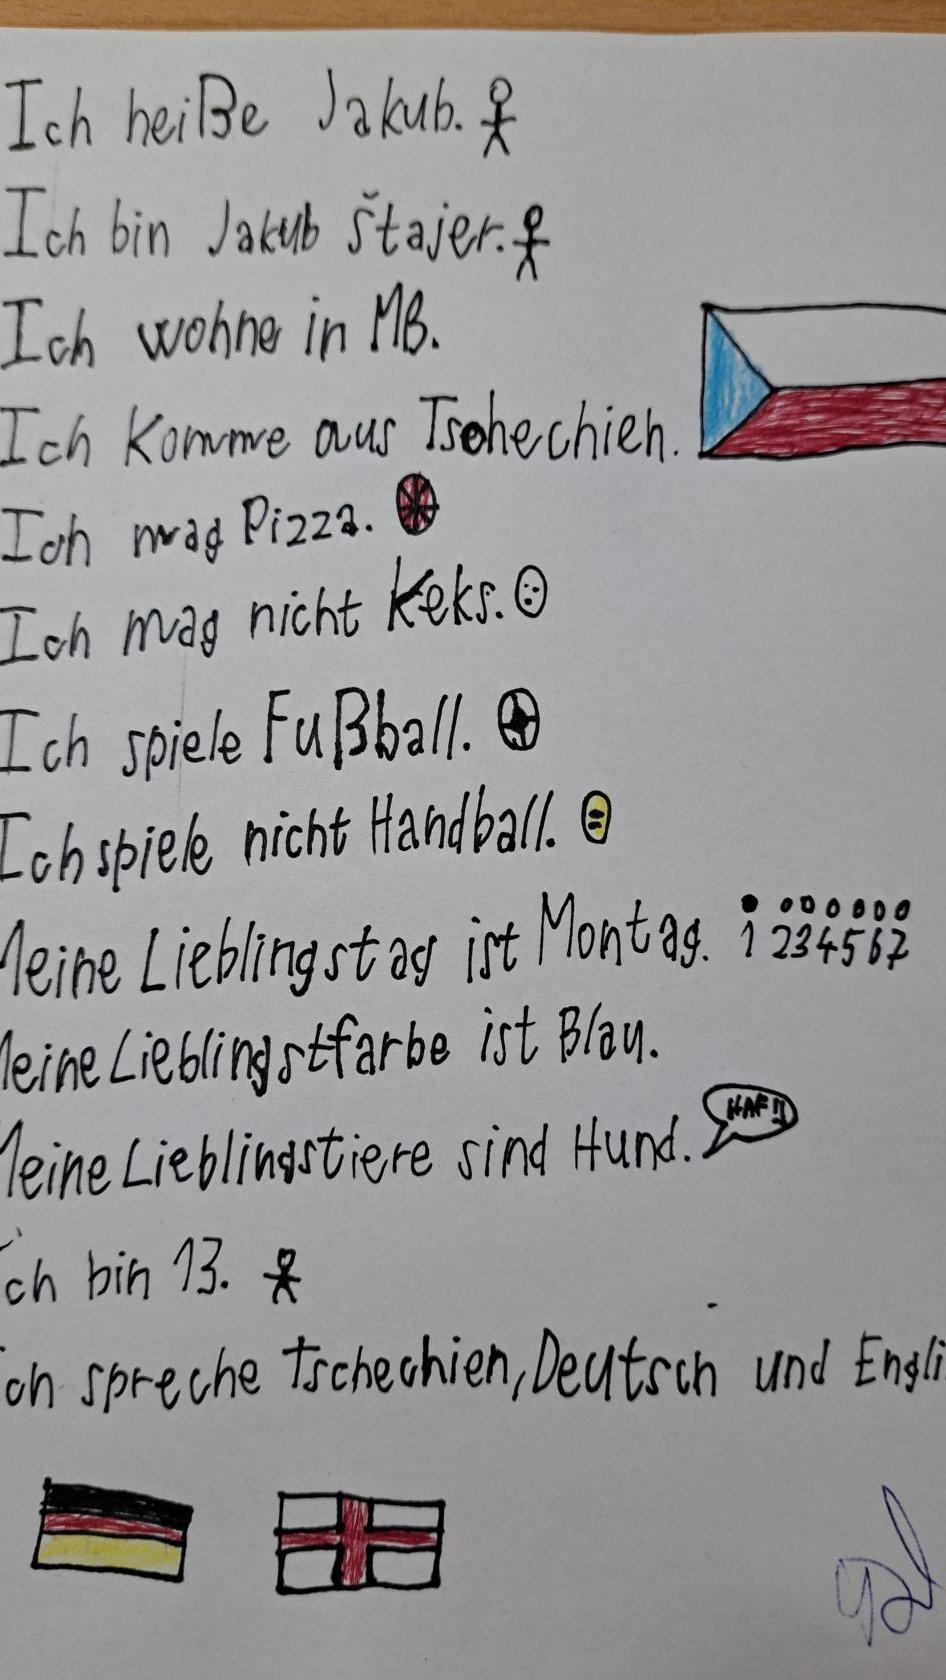 Ich heiße Jakub.
Ich bin Jakub Štajer.
Ich wohne in MB.
Ich komme aus Tschechien.
Ich mag Pizza.
Ich mag nicht Keks.
Ich spiele Fußball.
Ich spiele nicht Handball.
Meine Lieblingstag ist Montag. 1 2 3 4 5 6 7
Meine Lieblingstfarbe ist Blau.
Meine Lieblingstiere sind Hund. HAF!!
Ich bin 13.
Ich spreche Tschechien, Deutsch und Engli